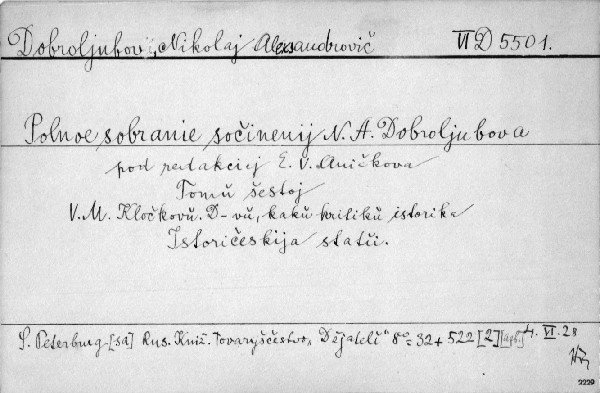 Dobroljubov, Nikolaj Aleksandrovič VI D 5501.
Polnoe sobranie sočinenij N. A. Dobroljubova
pod redakciej E. V. Aničkova
Tomŭ šestoj
V. M. Kločkovŭ. D-vŭ, kakŭ kritikŭ istorika
Istoričeskija statŭi.
S. Peterburg [sa] Rus. Kniž. Tovaryščestvo „Dějatelĭ" 8° = 32 + 522 [2] 4. VI. 28
2229